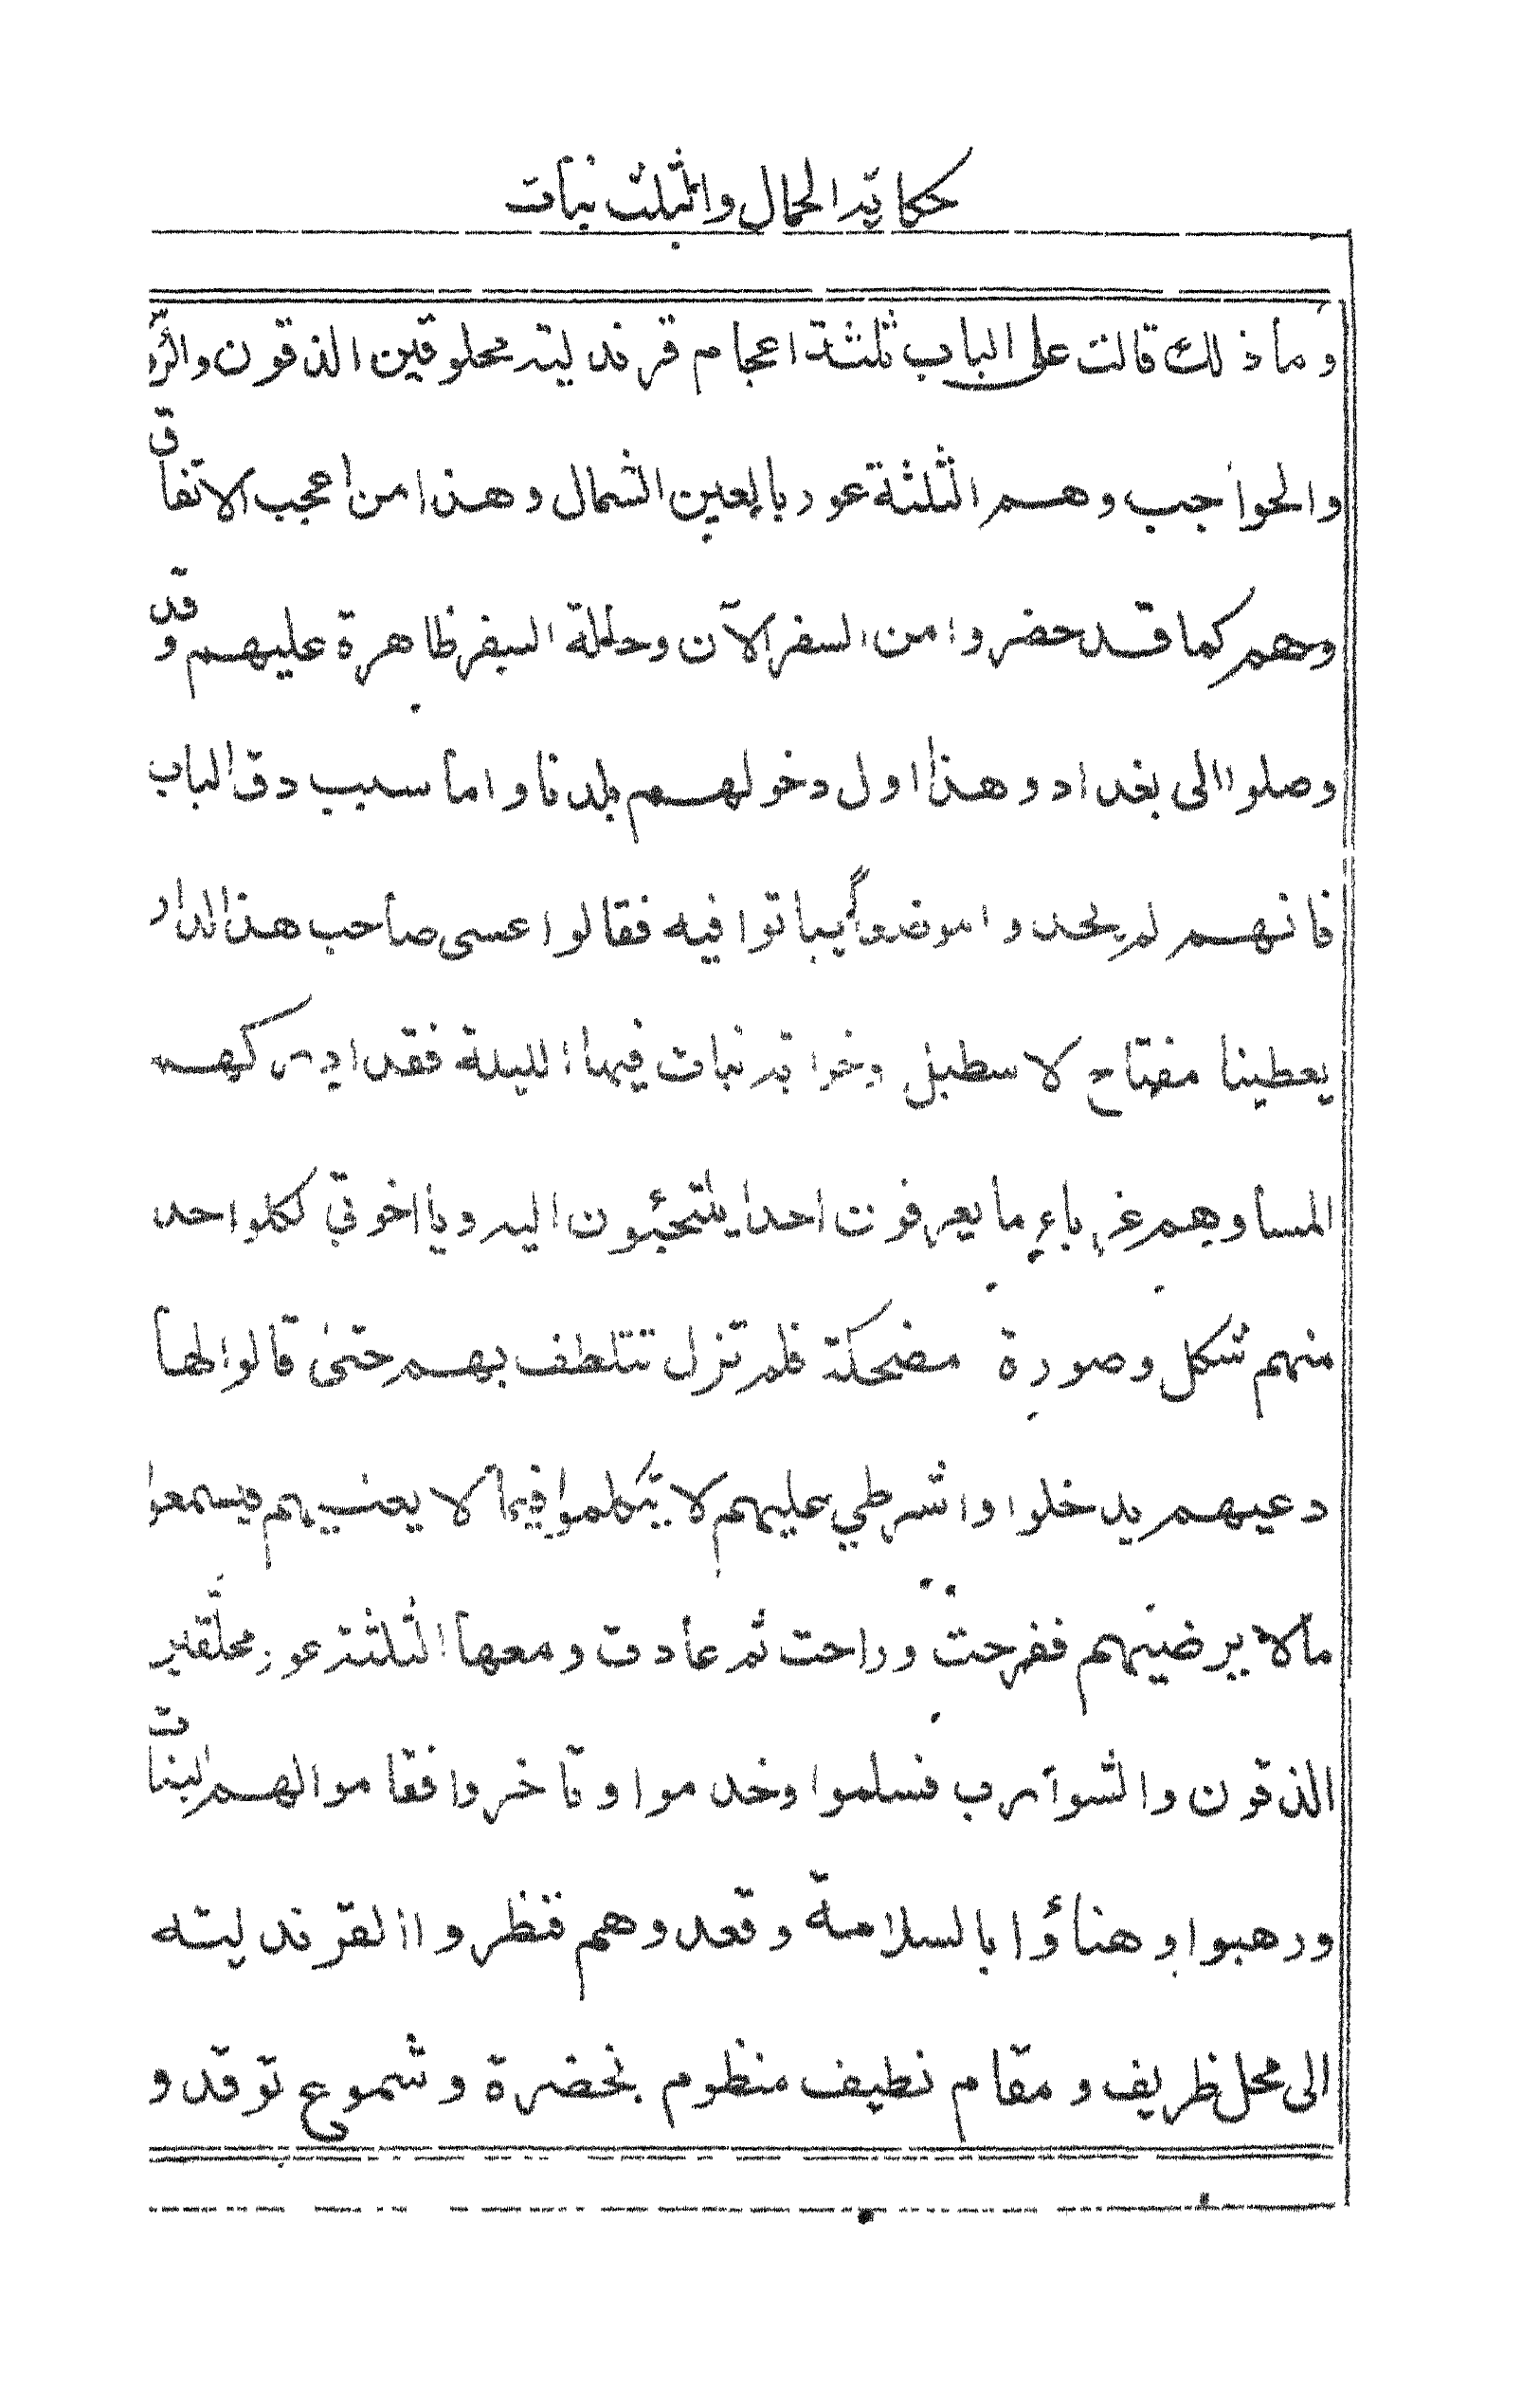 حكاية الحمال والثلث بنات
وما ذلك قالت على الباب ثلثة اعجام قرندلية محلوقين الذقون والرؤ
والحواجب وهم الثلثة عور بالعين الشمال وهذا من اعجب الاتفاق
وهم كما قد حضروا من السفر الآن وحالة السفر ظاهرة عليهم وقد
وصلوا الى بغداد وهذا اول دخولهم بلدنا واما سبب دق الباب
فانهم لم يجدوا موضعا يباتوا فيه فقالوا عسى صاحب هذا الدار
يعطينا مفتاح لاسطبل وخوابة نبات فيها الليلة فقد ادركهم
المسا وهم غرباء ما يعرفون احدا يلتجئون اليه ويا اخوتي لكلواحد
منهم شكل وصورة مضحكة فلم تزل تتلطف بهم حتى قالوا لها
دعيهم يدخلوا واشرطي عليهم لا يتكلموا فيما لا يعنيهم فيسمعوا
مالا يرضيهم ففرحت وراحت ثم عادت ومعها الثلثة عور محلقين
الذقون والشوارب فسلموا وخدموا وتاخروا فقاموا لهم البنات
ورهبوا وهناؤا بالسلامة وقعدوهم فنظروا القرندليته
الى محل ظريف ومقام نظيف منظوم بخضرة وشموع توقد و